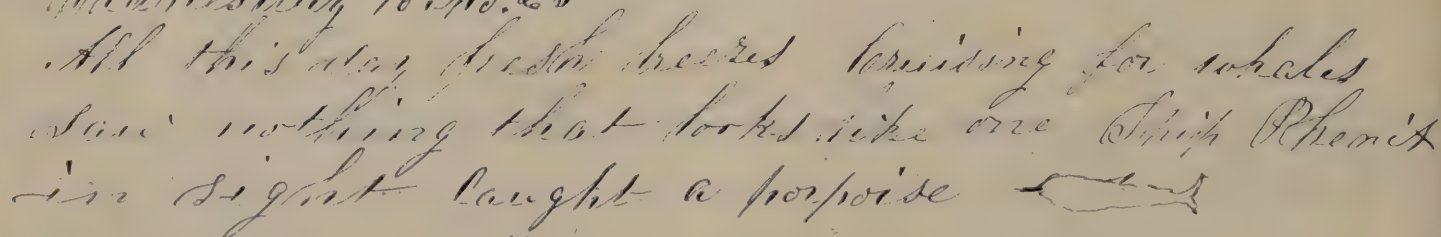 All this day fresh breezes Cruising for whales
saw nothing that looks like one Ship Phenix
in sight Caught a porpoise